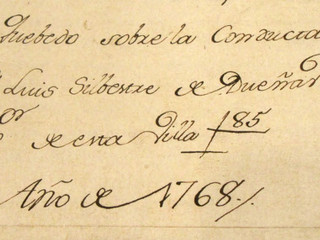 Quebedo sobre la Conducta
Luis Silbestre de Dueñas
or de esta Villa 85
Año de 1768